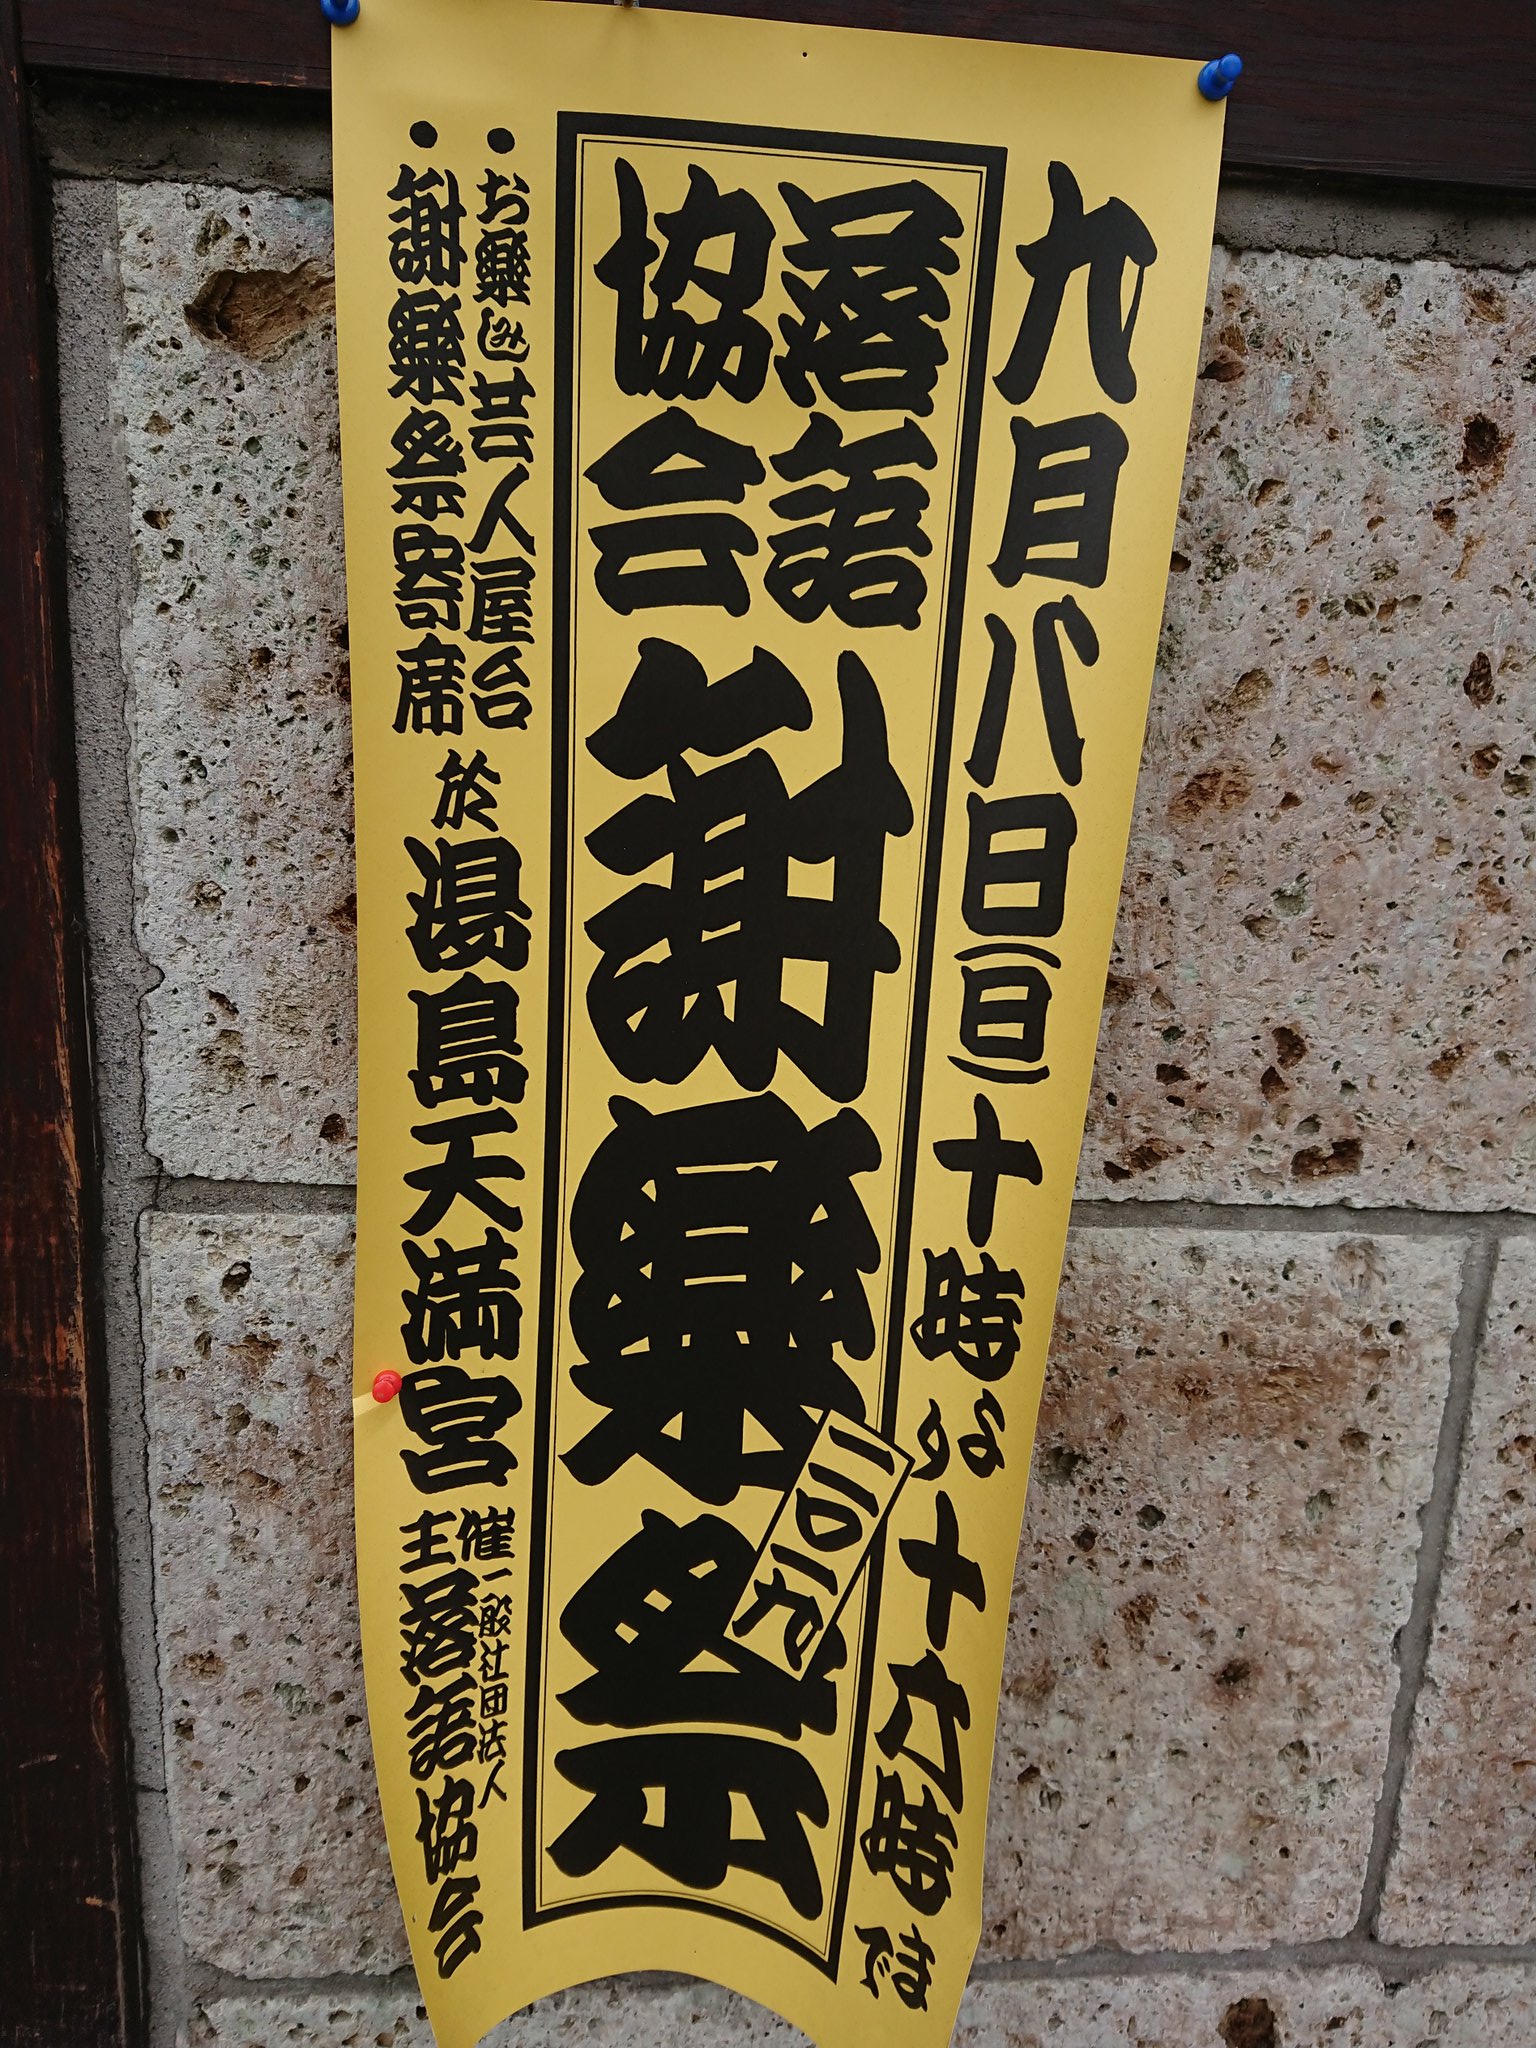 九月八日(日)十時から
まで
落語
協会
謝樂祭
二〇一九
・お樂しみ芸人屋台
・謝樂祭寄席
於 湯島天満宮
主催
一般社団法人
落語協会